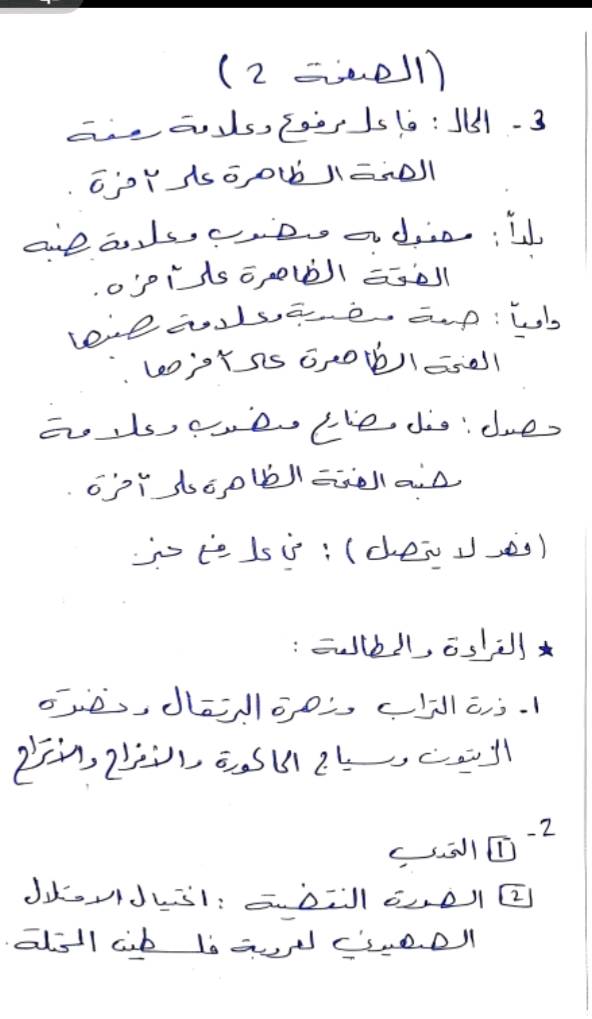 (الصفحة 2)
3- الحال: فاعل مرفوع وعلامة رفعة
الضمة الظاهرة على آخرة.
بلداً: مفعول به منصوب وعلامة نصبه
الفتحة الظاهرة على آخره.
دامياً: صفة منصوبة وعلامة نصبها
الفتحة الظاهرة على آخرها.
فعل مضارع منصوب وعلامة
نصبه الفتحة الظاهرة على آخرة.
(فهو لا يتصل): في محل رفع خبر.
★ القراءة والمطالعة:
1- ذرة التراب وزهرة البرتقال وخضرة
الزيتون وسياج الحاكورة والأفراح والأتراح
2-
1 التحدي
2 الصورة النقيضة: اغتيال الاحتلال
الصهيوني لعروبة فلسطين المحتلة.